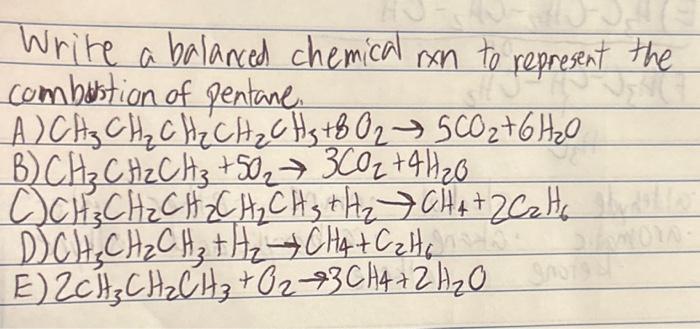 Write a balanced chemical rxn to represent the
combustion of pentane.
A) CH3CH2CH2CH2CH3+8O2→5CO2+6H2O
B) CH3CH2CH3+5O2→3CO2+4H2O
C) CH3CH2CH2CH2CH3+H2→CH4+2C2H6
D) CH3CH2CH3+H2→CH4+C2H6
E) 2CH3CH2CH3+O2→3CH4+2H2O